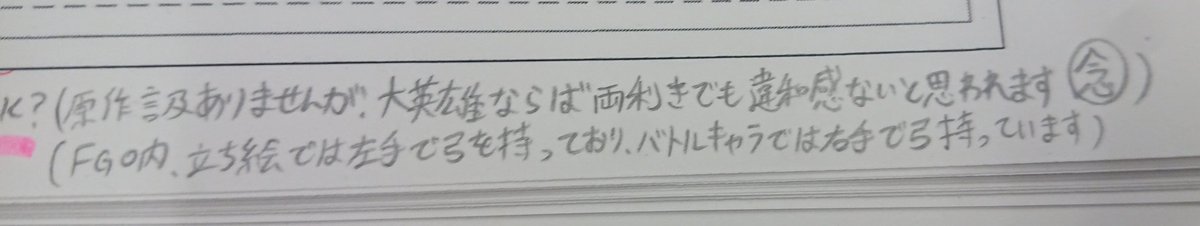 K?(原作言及ありませんが、大英雄ならば両利きでも違和感ないと思われます㊥念)
(FGO内、立ち絵では左手で弓を持っており、バトルキャラでは右手で弓持っています)